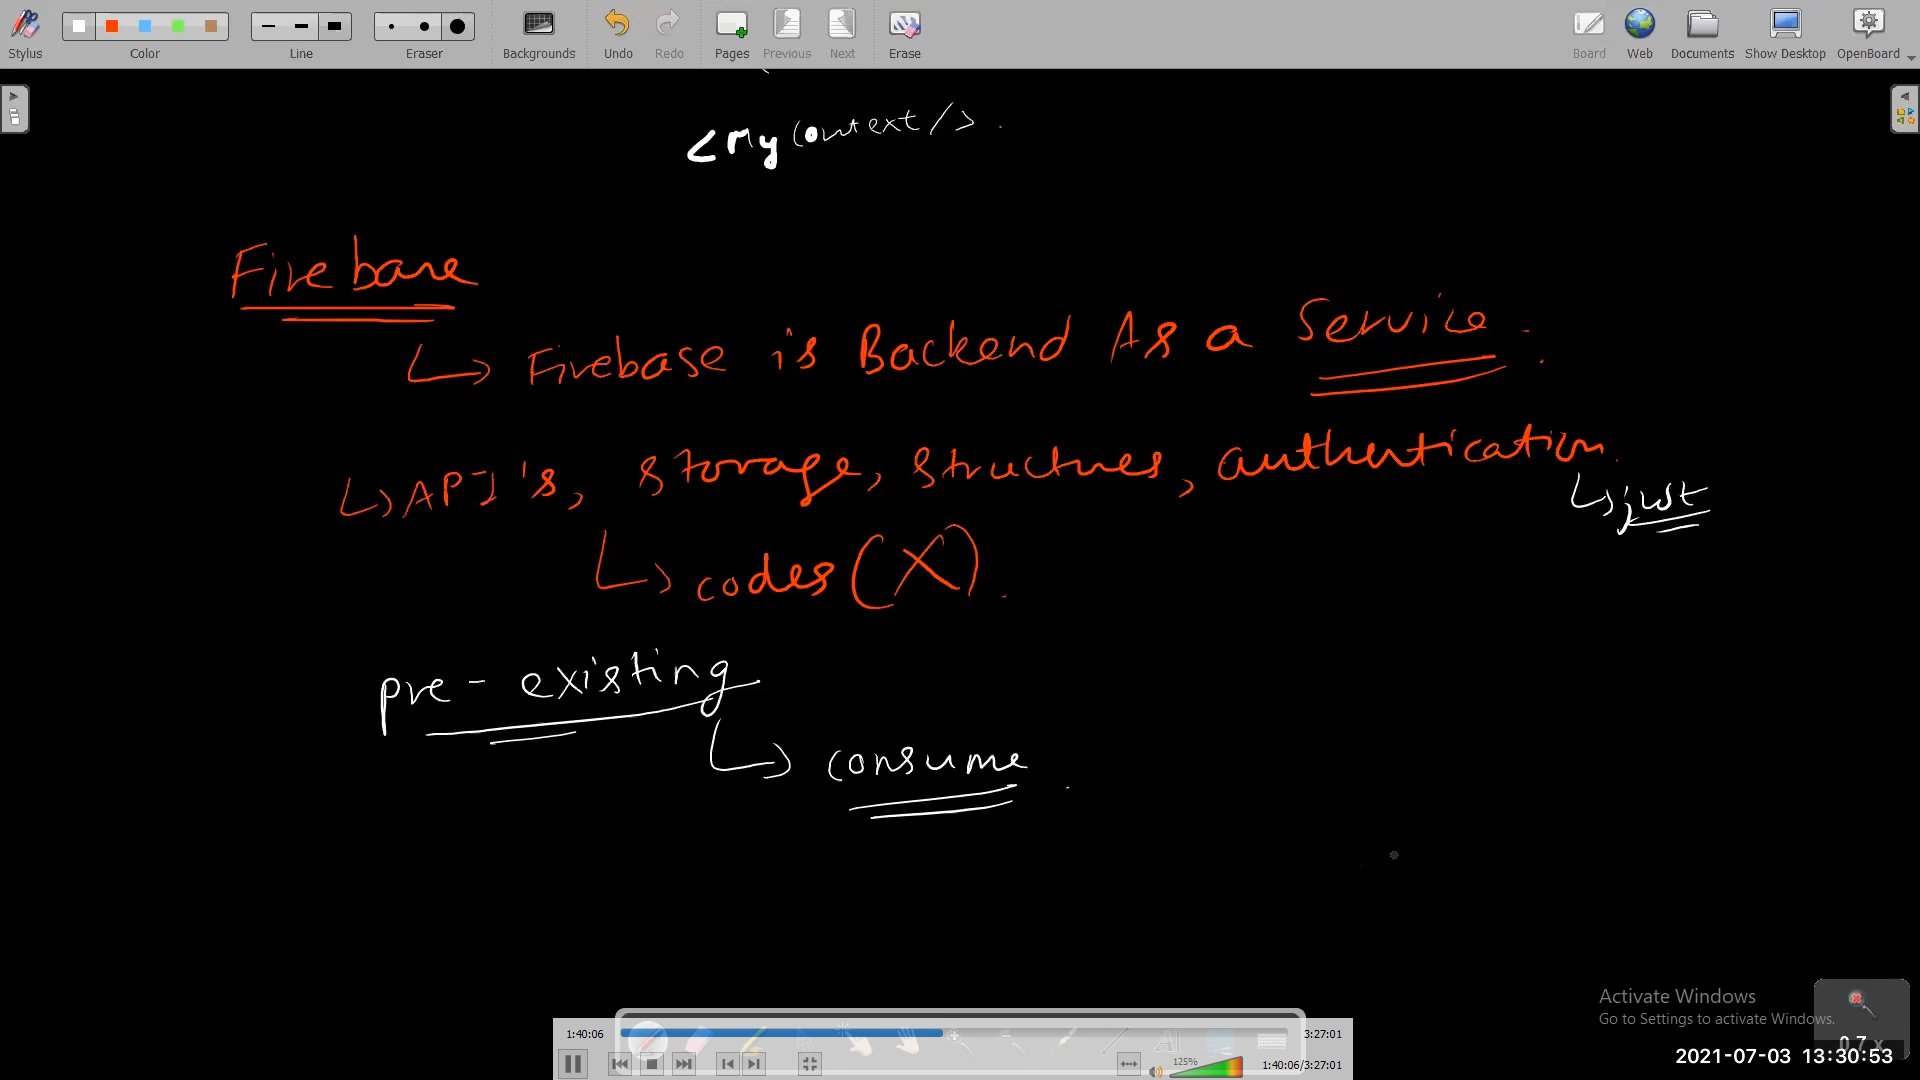 Stylus Color Line Eraser Backgrounds Undo Redo Pages Previous Next Erase Board Web Documents Show Desktop OpenBoard
<My Context/> .
Firebase
Firebase is Backend As a Service .
API's, storage, structures, authentication.
just
codes (X) .
pre - existing
consume .
Activate Windows
Go to Settings to activate Windows.
0.7 x
1:40:06 3:27:01
2021-07-03 13:30:53
125% 1:40:06/3:27:01